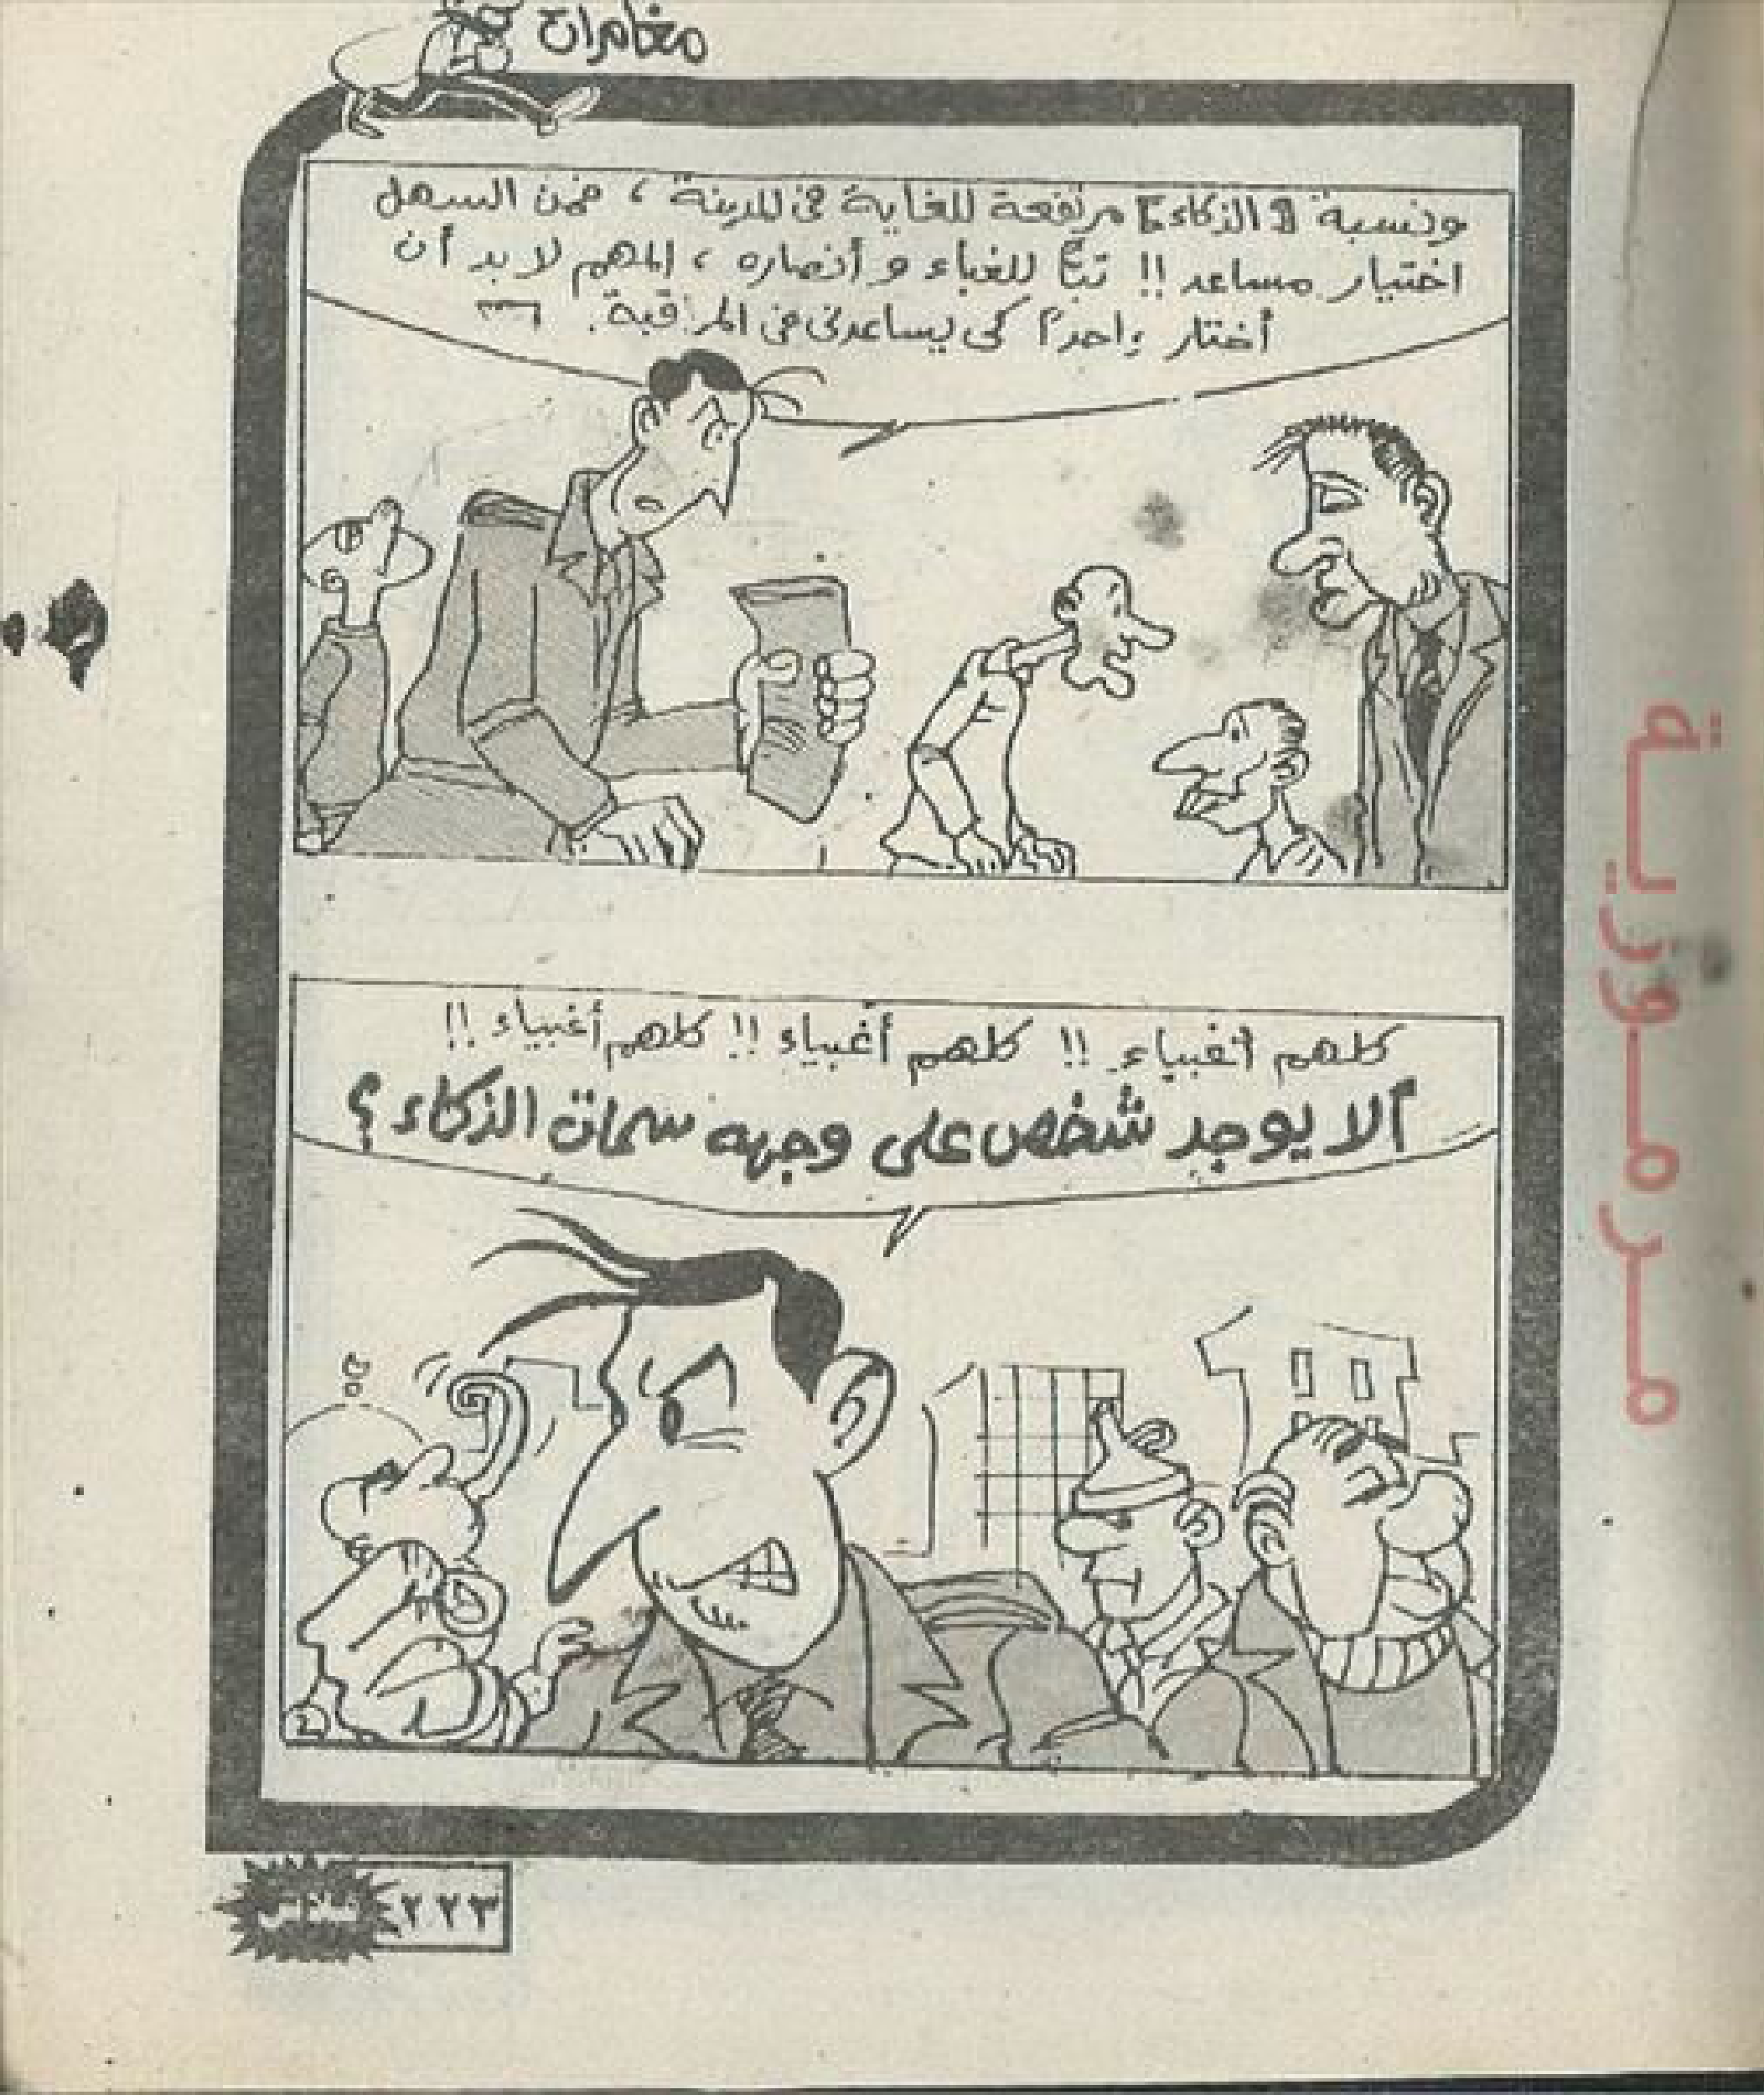 مغامرات
ونسبة [الذكاء] مرتفعة للغاية فى المدينة ، فمن السهل
اختيار مساعد !! تبًا للغباء و أنصاره ، المهم لابد أن
أختار واحدًا كى يساعدنى فى المراقبة.
كلهم أغبياء !! كلهم أغبياء !! كلهم أغبياء !!
ألا يوجد شخص على وجهه سمات الذكاء ؟
مرموزية
٢٢٣
فلاش